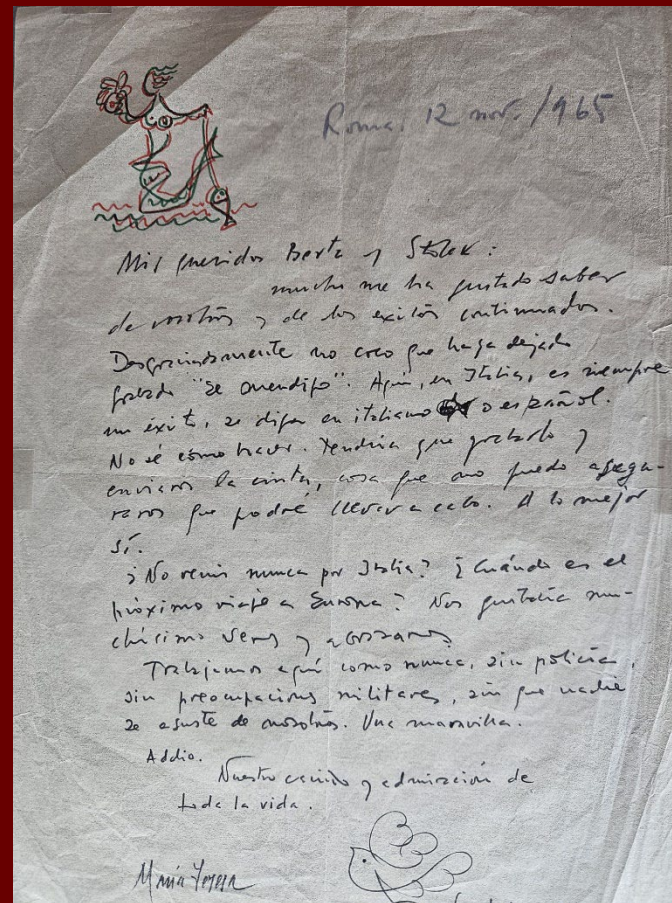 Roma, 12 nov. 1965
Mis queridos Berta y
mucho me ha gustado saber
de vosotros y de los éxitos continuados.
Desgraciadamente no creo que haya dejado
grabado "Se equivocó". Aquí, en Italia, es siempre
un éxito, se diga en italiano o español.
No sé cómo hacer. Tendría que grabarlo y
enviaros la cinta, cosa que no puedo asegu-
raros que podré llevar a cabo. A lo mejor
sí.
¿No venís nunca por Italia? ¿Cuándo es el
próximo viaje a Europa? Nos gustaría mu-
chísimo veros y abrazaros.
Trabajamos aquí como nunca, sin policía,
sin preocupaciones militares, sin que nadie
se asuste de nosotros. Una maravilla.
Addio.
Nuestro cariño y admiración de
toda la vida.
María Teresa